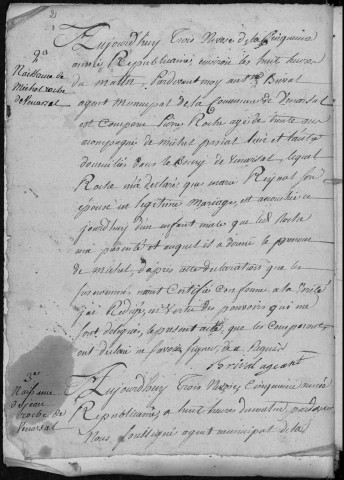 2
2e
Naissance de
Michel roche
de Venarsal
Aujourdhuy Trois Nivose de la Cinquieme
année Republicaine, environ les huit heures
du matin, Pardevant moy ant Brival
agent Municipal de la Commune de Venarsal
est comparu Pierre Roche agé de trente
accompagné de michel parial
domiciliés dans le Bourg de Venarsal, lequel
Roche m'a declaré que marie Reynal son
epouse en legitime Mariage, est accouchée ce
jourdhuy d'un enfant male que led Roche
m'a presenté et auquel il a donné le prenom
de michel, d'apres cette declaration que les
susnommés mont Certifiés conforme a la verité
j'ai Redigé, en Vertu des pouvoirs qui me
sont delegués, le present acte, que les comparants
ont declaré ne savoir signer, de ce Requis
Brival agent
3e
Naissance
de jean
roche de
Venarsal
Aujourdhuy Trois Nivose Cinquieme année
Republicaine, a huit heures du matin, pardevant
Nous soussigné agent municipal de la